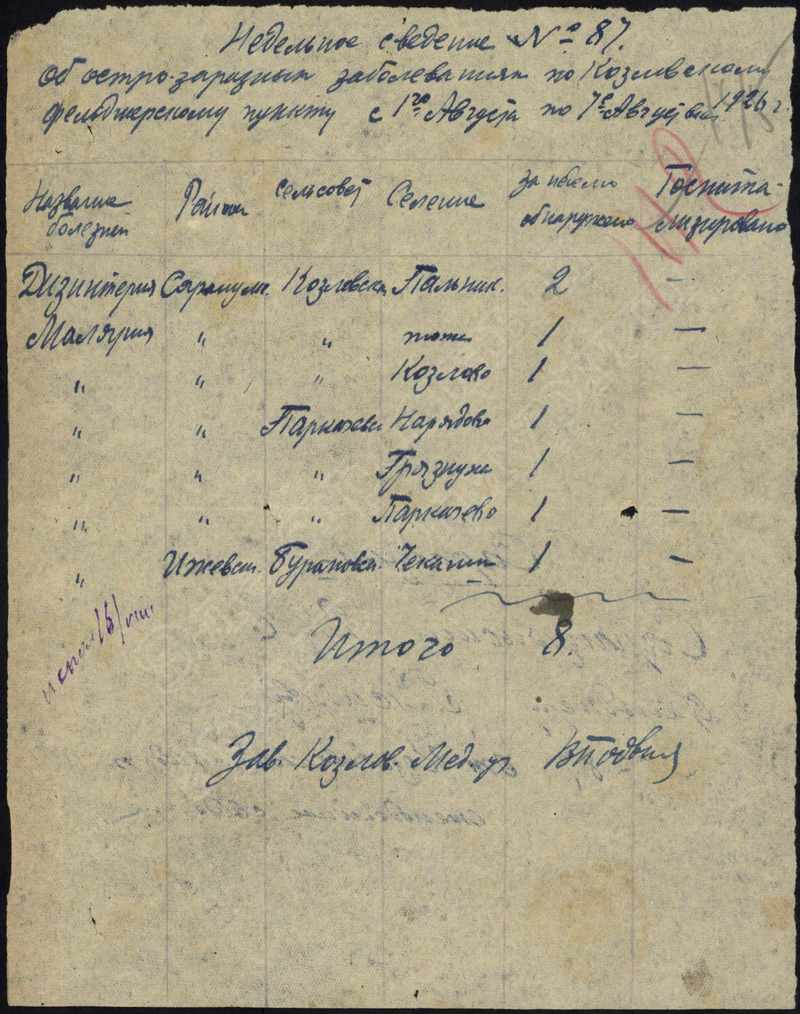 Недельное сведение № 87.
об остро-заразных заболеваниях по Козловскому
фельдшерскому пункту с 1го Августа по 7е Августа 1926 г.
Название болезней Район сельсовет Селение за неделю обнаружено Госпитализировано
Дизинтерия Сарапульс. Козловск. Пальник. 2 —
Малярия " " тоже 1 —
" " " Козлово 1 —
" " Паркачевс Нарядово 1 —
" " " Грязнуха 1 —
" " " Паркачево 1 —
" Ижевск. Бурановск. Чекалки 1 —
Итого 8.
Зав. Козлов. Мед. уч.